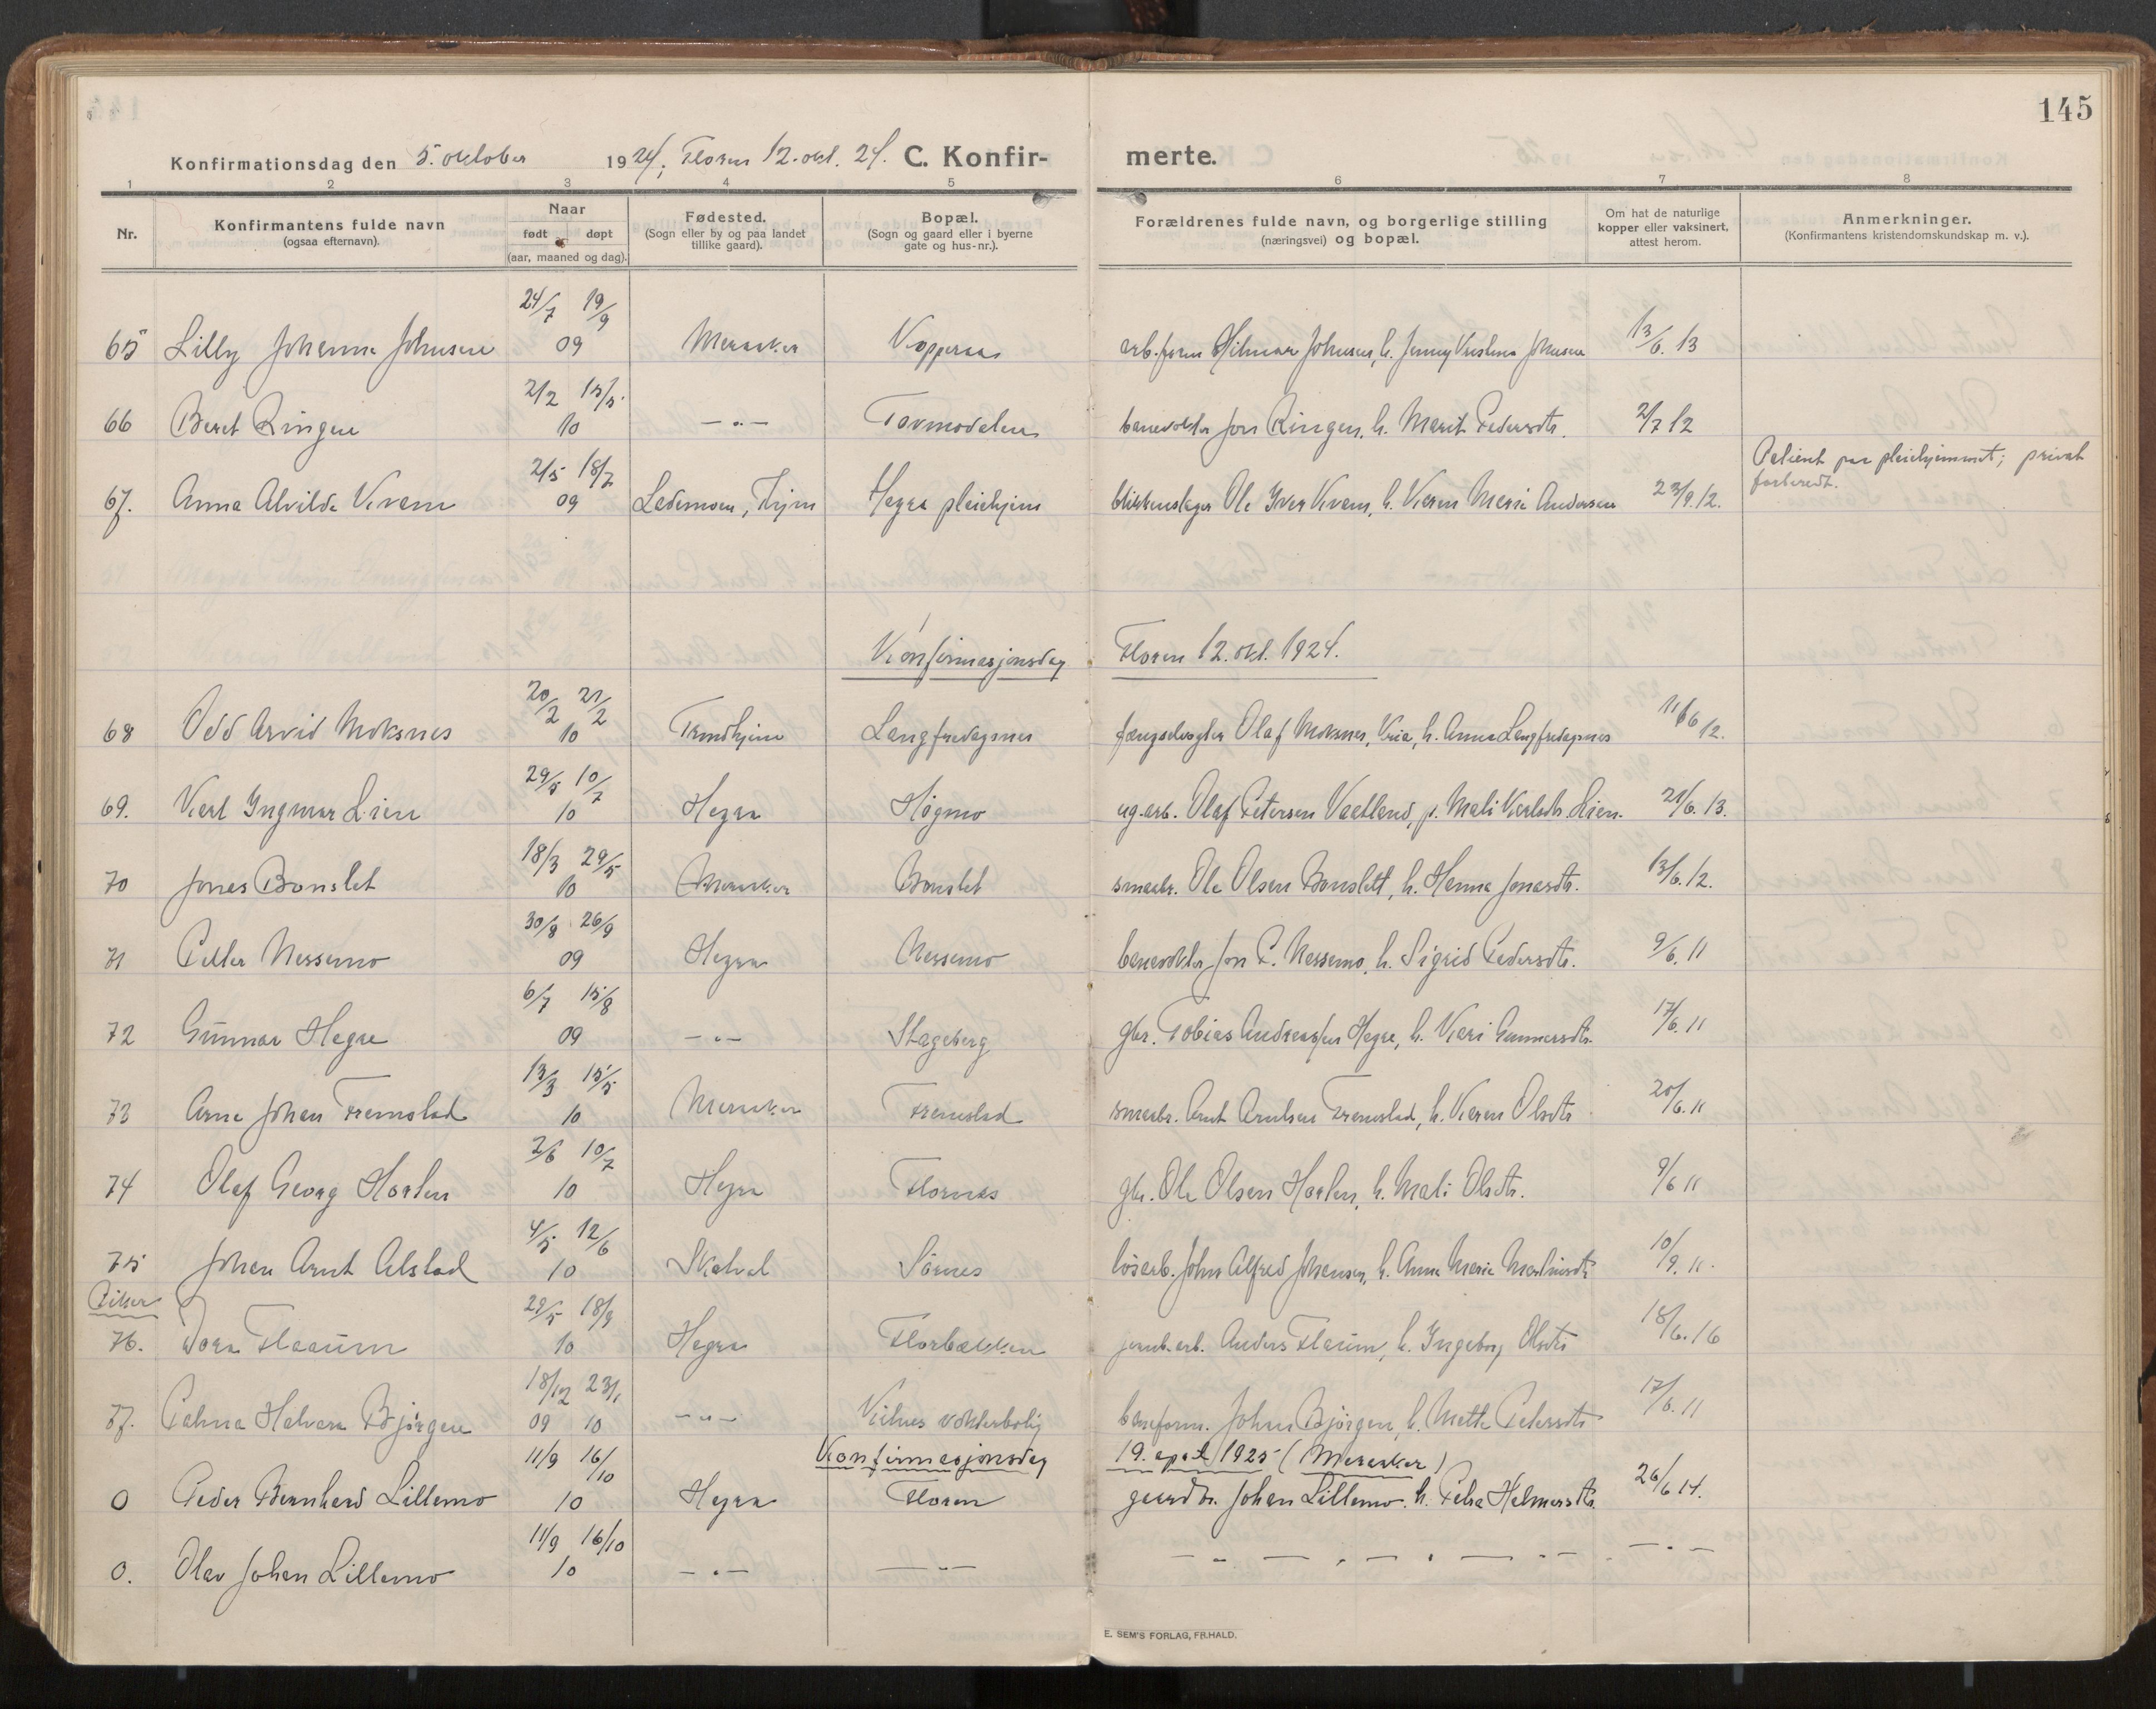 145
Konfirmationsdag den 5. oktober 1924; Floren 12. okt. 24. C. Konfirmerte.
1 2 3 4 5 6 7 8
Nr.
Konfirmantens fulde navn
(ogsaa efternavn).
Naar
født og døpt
(aar, maaned og dag).
Fødested.
(Sogn eller by og paa landet
tillike gaard).
Bopæl.
(Sogn og gaard eller i byerne
gate og hus-nr.).
Forældrenes fulde navn, og borgerlige stilling
(næringsvei) og bopæl.
Om hat de naturlige
kopper eller vaksinert,
attest herom.
Anmerkninger.
(Konfirmantens kristendomskundskap m. v.).
24/7 19/9
65 Lilly Johanna Johnsen 09 Meraker Kopperaa arb.form Hilmar Johnsen, h. Jenny Kristina Johnsen 13/6. 13
2/2 15/5
66 Beret Ringen 10 —„— Tovmodalen banevokter Jon Ringen, h. Marit Pedersdtr. 2/7 12
2/5 18/7
67. Anna Alvilde Kvam 09 Lademoen, Trjm Hegra pleiehjem blikkenslager Ole Iver Kvam, h. Karen Marie Andersen 23/9. 12. Patient paa pleiehjemmet; privat
forberedt.
Konfirmasjonsdag Floren 12. okt. 1924.
20/2 21/2
68 Odd Arvid Moksnes 10 Trondhjem Langfredagsnes fængselvogter Olaf Moksnes, h. Anna Langfredagsnes 11/6 12.
29/5 10/7
69. Karl Ingmar Lien 10 Hegra Høgmo ug.arb. Olaf Petersen Vaatland, p. Mali Karlsdtr. Lien. 21/6. 13.
18/3 29/5
70 Jonas Bonslet 10 Meraker Bonslet smaabr. Ole Olsen Bonslett, h. Hanna Jonasdtr. 13/6. 12.
30/8 26/9
71 Petter Nessemo 09 Hegra Nessemo banevokter Jon P. Nessemo, h. Sigrid Pedersdtr. 9/6. 11
6/7 15/8
72 Gunnar Hegre 09 —„— Stageberg gbr. Tobias Andreassen Hegre, h. Kari Gunnarsdtr. 17/6. 11
13/3 15/5
73 Arne Johan Fremstad 10 Meraker Fremstad smaabr. Arnt Arntsen Fremstad, h. Karen Olsdtr 20/6. 11
2/6 10/7
74 Olaf Georg Haarlen 10 Hegra Flornes gbr. Ole Olsen Haarlen, h. Mali Olsdtr. 9/6 11
4/5 12/6
75 Johan Arnt Alstad 10 Skatval Sörnes lösarb. John Alfred Johansen, h. Anna Marie Martinsdtr 10/9. 11.
Piker
29/5 18/9
76. Dora Flaaum 10 Hegra Florbækken jernb.arb. Anders Flaum, h. Ingeborg Olsdtr 18/6. 16
18/12 23/1
77. Palma Halvara Bjørgen 09 10 —„— vokterbolig baneform. Johan Bjørgen, h. Mette Petersdtr 17/6. 11
Konfirmasjonsdag 19. april 1925 (Meraker)
11/9 16/10
0 Peder Bernhard Lillemo 10 Hegra Floren gaardbr. Johan Lillemo. h. Petra Helmersdtr. 26/6 14.
11/9 16/10
0. Olav Johan Lillemo 10 —„— —„— —„— —„— —„— —„—
E. SEM'S FORLAG, FR.HALD.